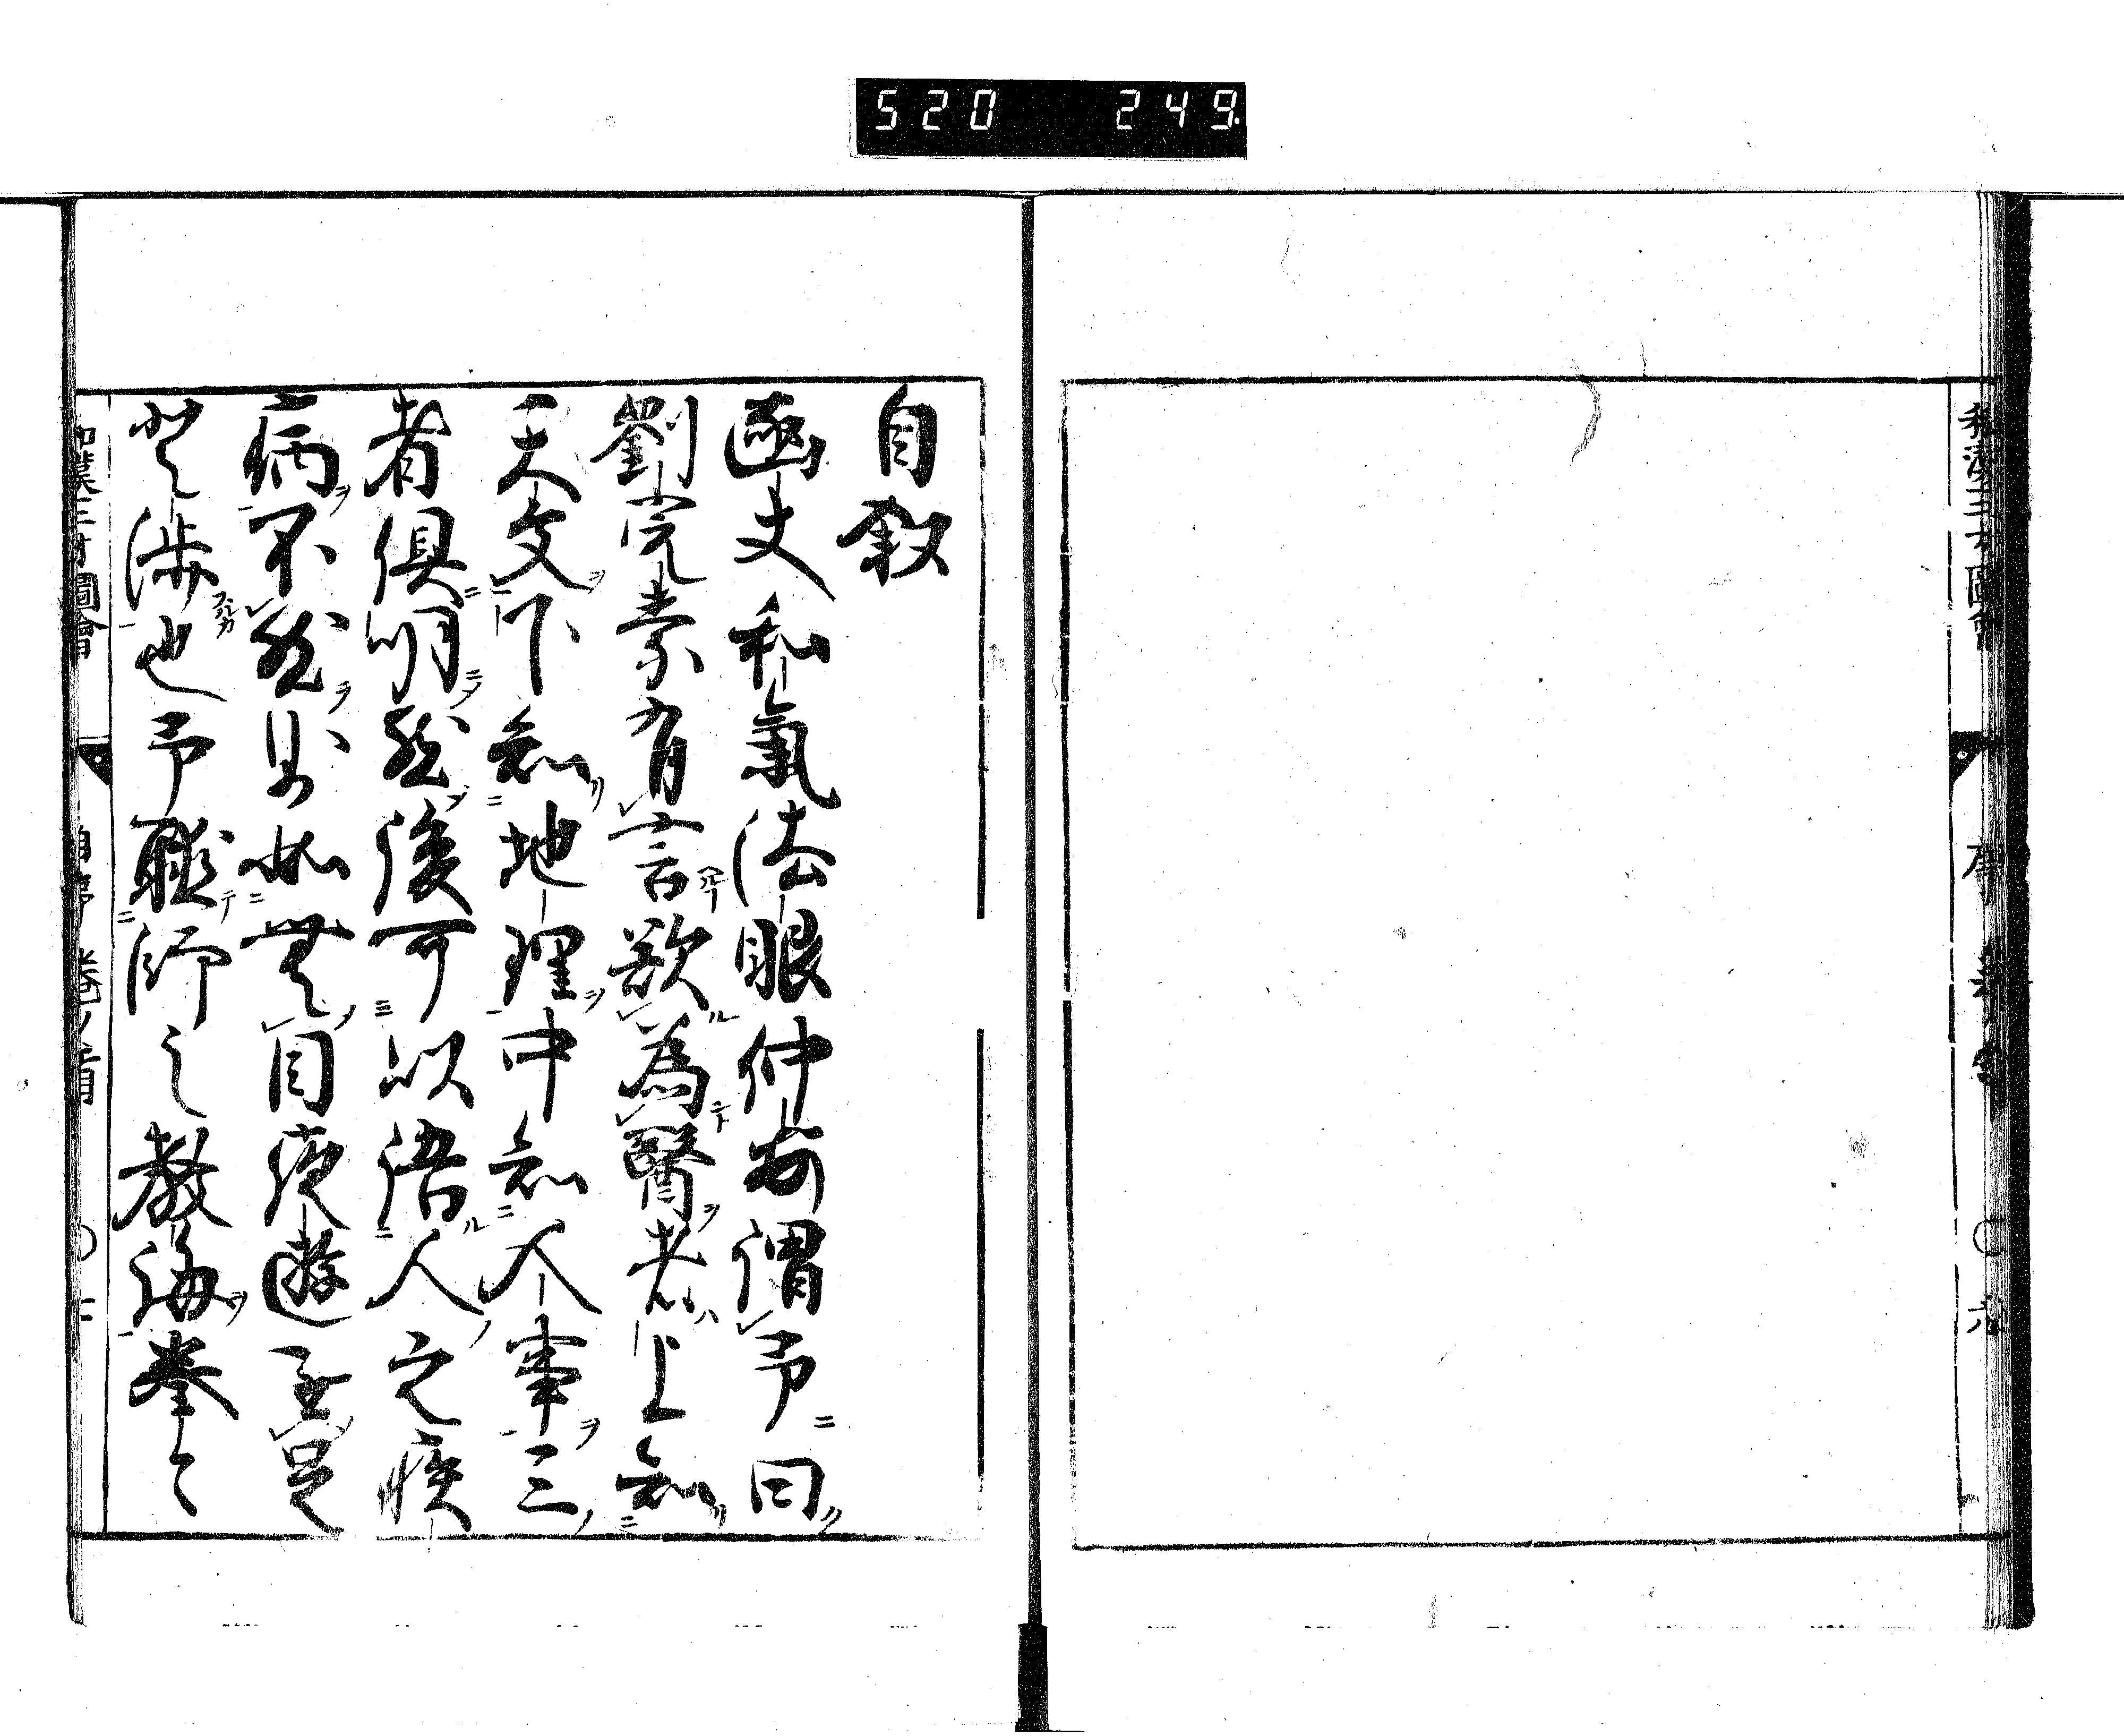 520 249
和漢三才圖會
自叙
函丈和氣法眼仲安謂予曰
劉完素有言欲為醫者上知
天文下知地理中知人事三
者俱明然後可以語人之疾
病不然則如無目夜遊無足
登渉也予聽師之教誨拳〻
和漢三才圖會 自序 卷ノ首